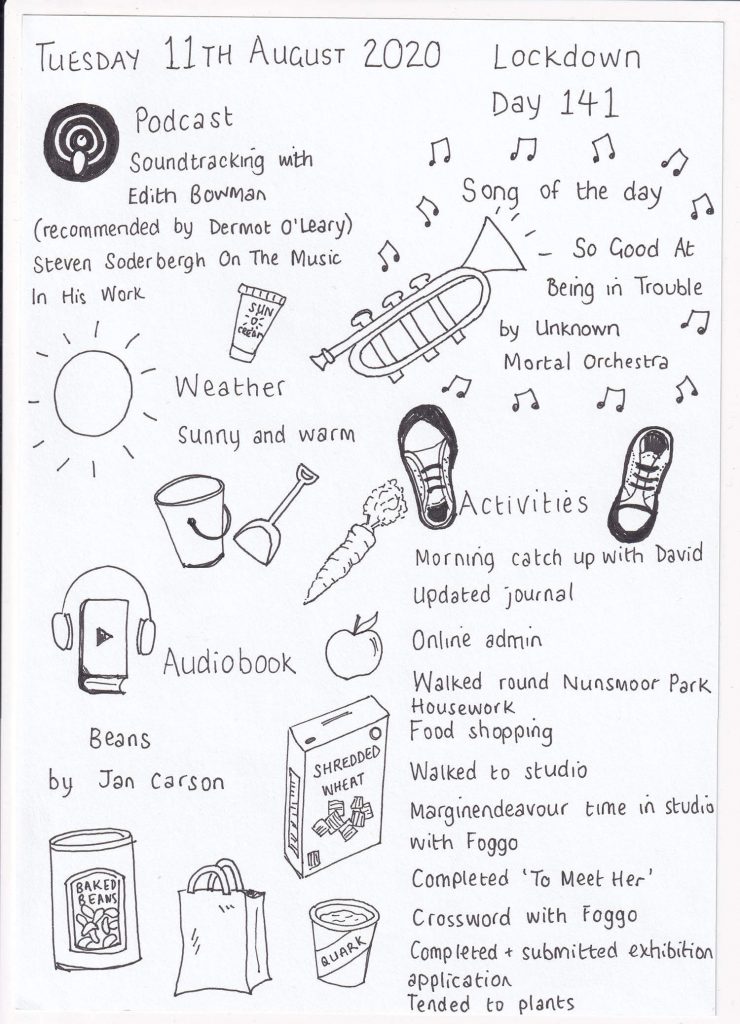 TUESDAY 11TH AUGUST 2020
Lockdown
Day 141
Podcast
Soundtracking with
Edith Bowman
(recommended by Dermot O'Leary)
Steven Soderbergh On The Music
In His Work
Song of the day
So Good At
Being in Trouble
by Unknown
Mortal Orchestra
SUN
CREAM
Weather
Sunny and warm
Activities
Morning catch up with David
Updated journal
Online admin
Walked round Nunsmoor Park
Housework
Food shopping
Walked to studio
Marginendeavour time in studio
with Foggo
Completed 'To Meet Her'
Crossword with Foggo
Completed + submitted exhibition
application
Tended to plants
Audiobook
Beans
by Jan Carson
SHREDDED
WHEAT
BAKED
BEANS
QUARK